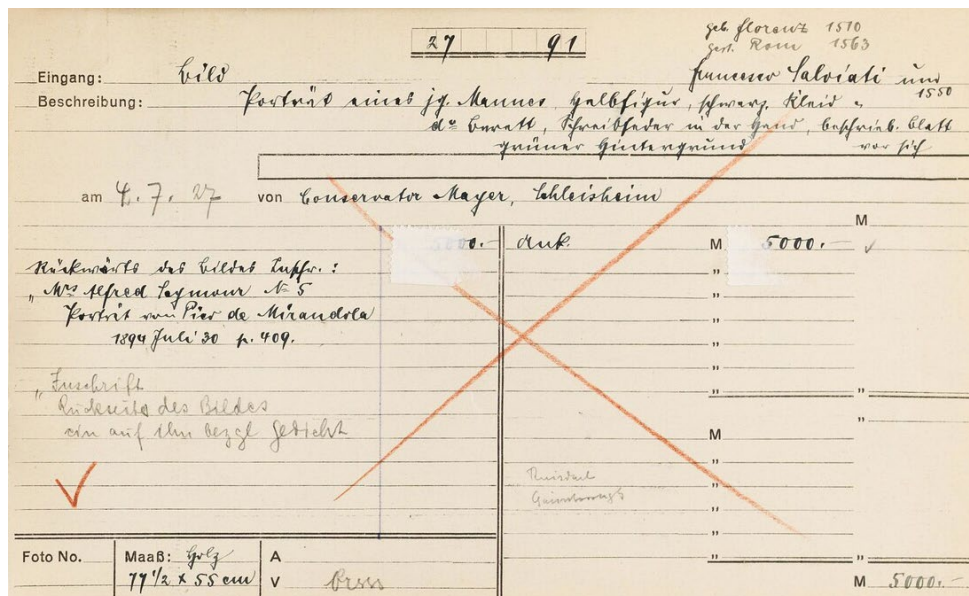 geb. Florenz 1510
gest. Rom 1563
27 91
Eingang: Bild Francesco Salviati um
1550
Beschreibung: Porträt eines jg. Mannes, Halbfigur, schwarz. Kleid "
do Barett, Schreibfeder in der Hand, beschrieb. Blatt
grüner Hintergrund vor sich
am 4.7.27 von Conservator Mayer, Schleisheim
M
5000.- Ank. M 5000.-
Rückwärts des Bildes Inschr.:
"Mrs Alfred Seymour No 5
Porträt von Pico de Mirandola
1894 Juli 30 p. 409.
" Inschrift
Rückseite des Bildes
ein auf ihn bezgl Gedicht
M
Foto No. Maaß: Holz A
77 1/2 x 55 cm V
M 5000.-